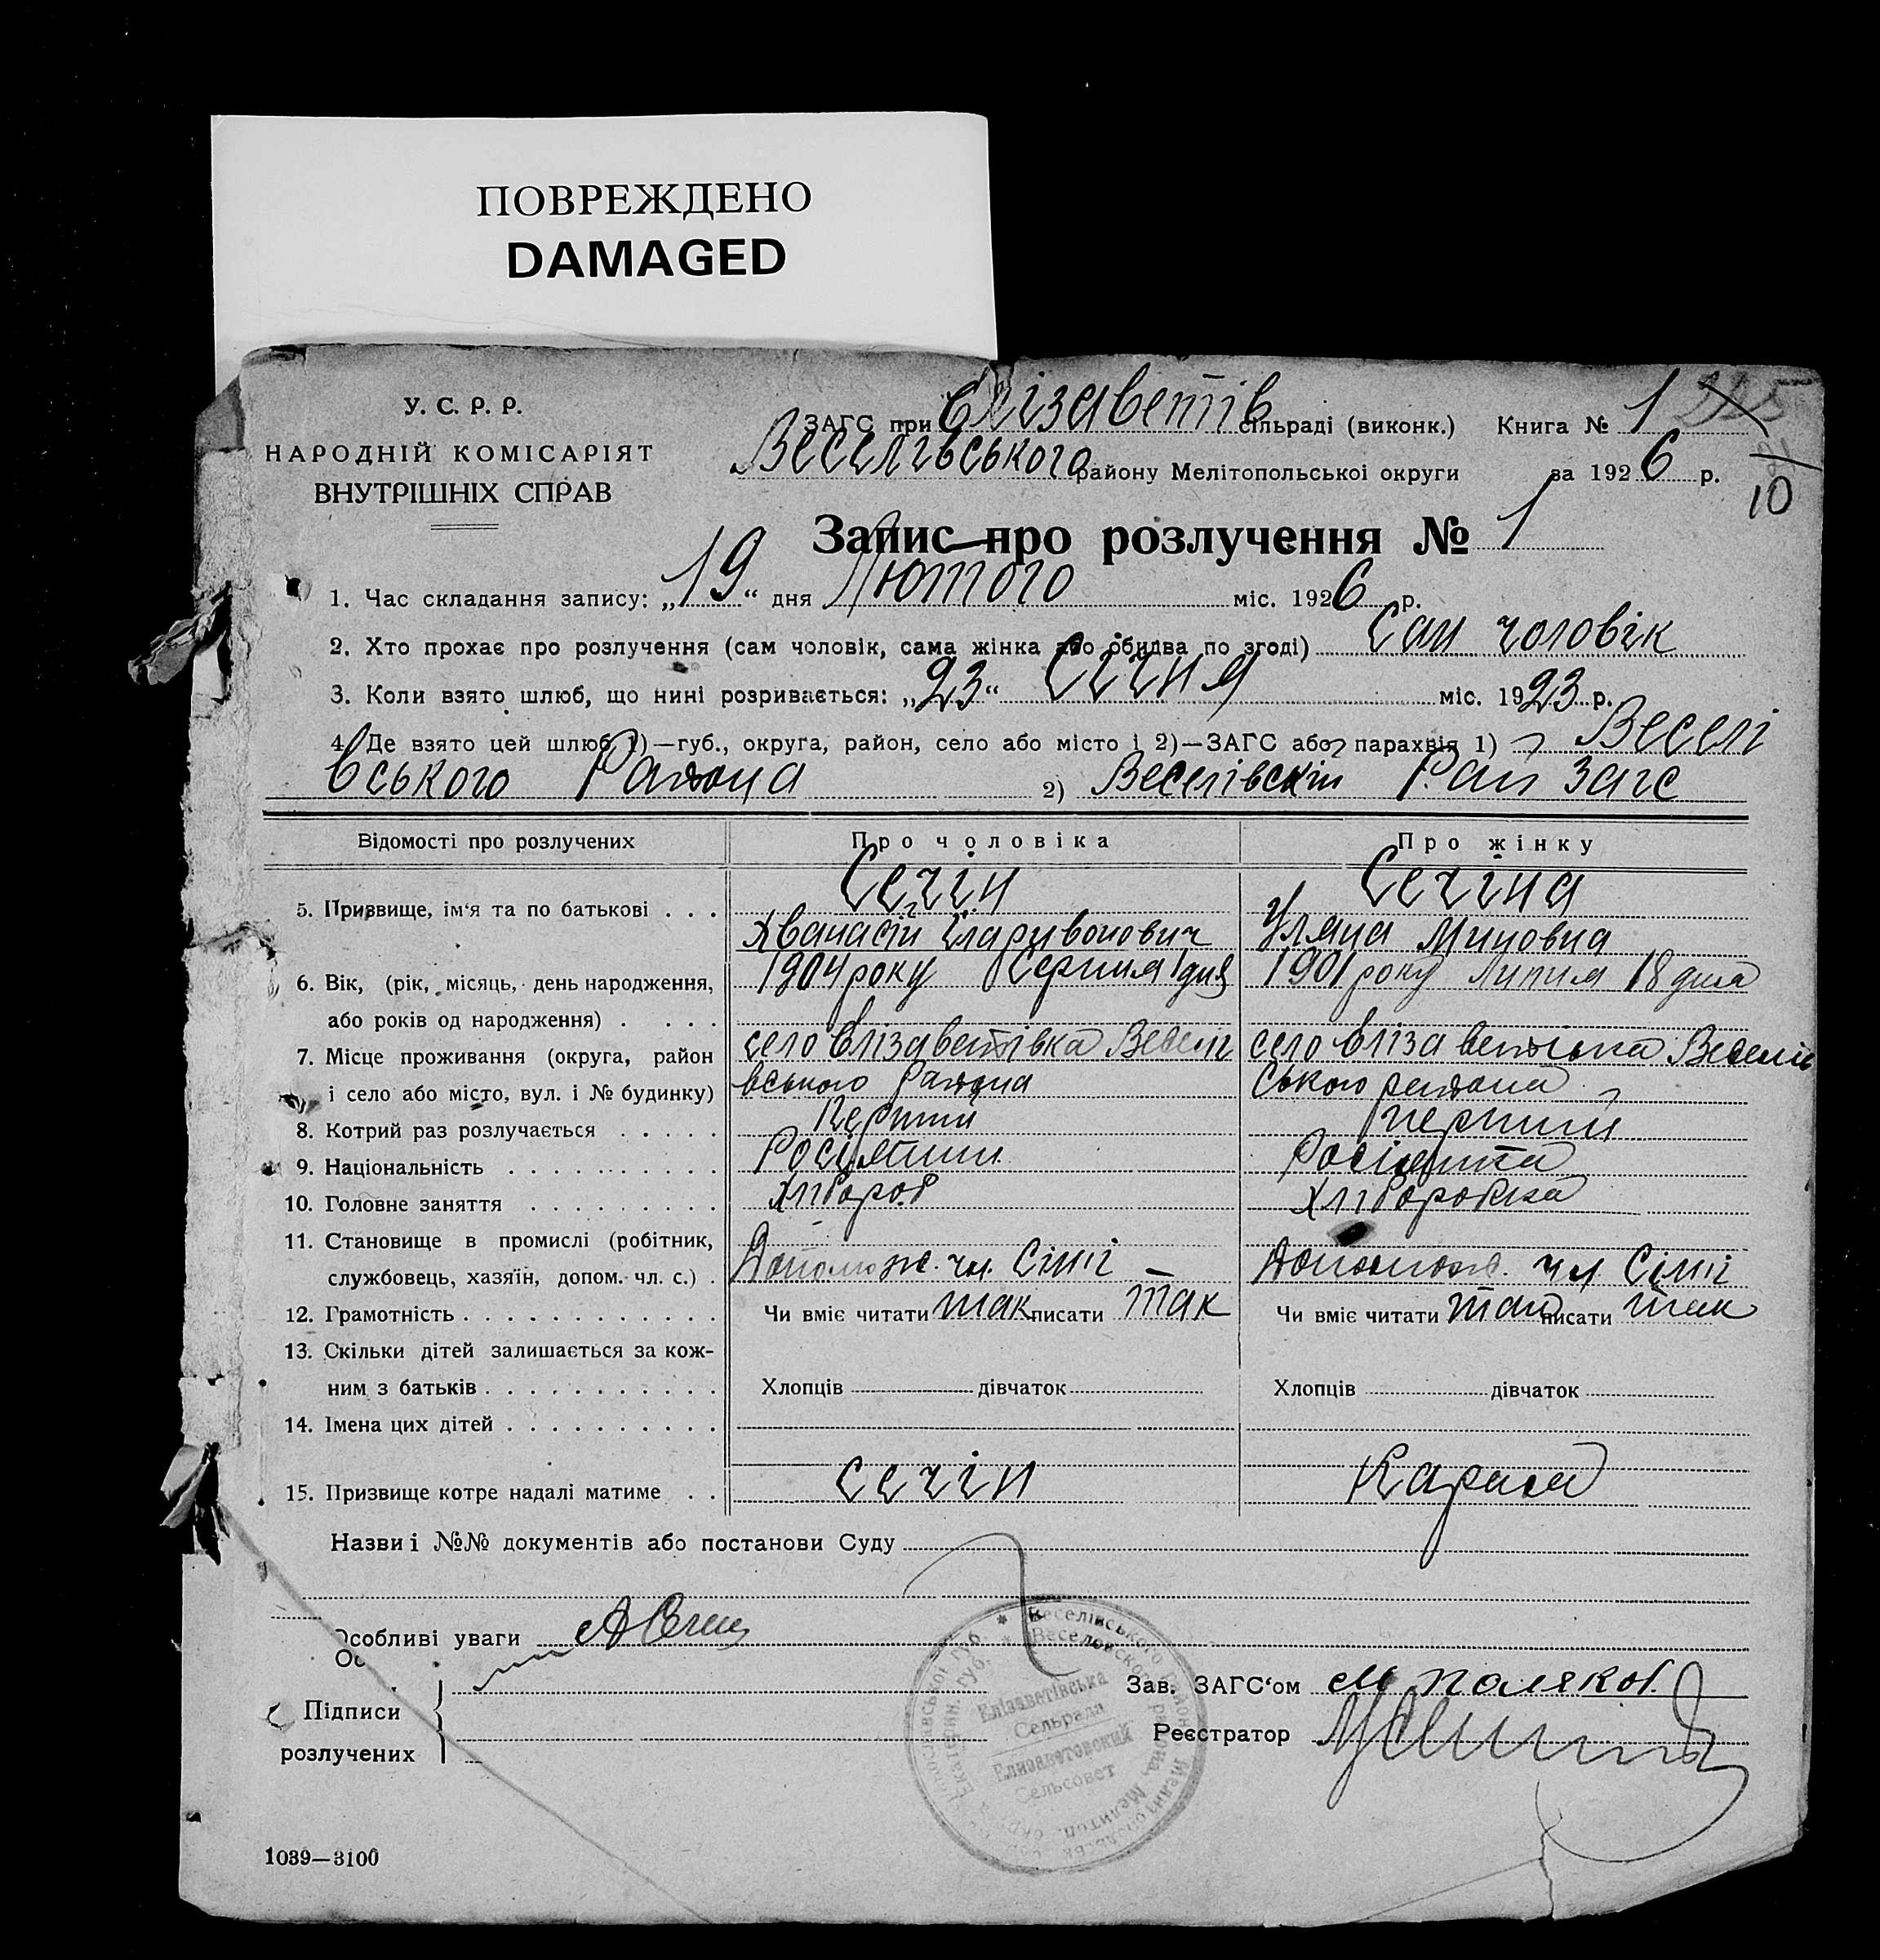 ПОВРЕЖДЕНО
DAMAGED
У. С. Р. Р.
НАРОДНІЙ КОМІСАРІЯТ
ВНУТРІШНІХ СПРАВ
ЗАГС при Єлізаветів сільраді (виконк.) Книга № 1
Веселівського району Мелітопольської округи за 1926 р.
10
Запис про розлучення № 1
1. Час складання запису: „19“ дня Лютого міс. 1926 р.
2. Хто прохає про розлучення (сам чоловік, сама жінка або обидва по згоді) Сам чоловік
3. Коли взято шлюб, що нині розривається: „23“ Січня міс. 1923 р.
4. Де взято цей шлюб 1)—губ., округа, район, село або місто і 2)—ЗАГС або парахвія 1) Веселі
вського Района 2) Веселівскій Рай Загс
Відомості про розлучених Про чоловіка Про жінку
5. Призвище, ім‘я та по батькові . . . Сечін Сечіна
Хванасій Іларивонович Уляна Миновна
6. Вік, (рік, місяць, день народження, 1904 року Серпня 1 дня 1901 року Липня 18 дня
або років од народження) . . . .
7. Місце проживання (округа, район село Єлізаветівка Веселі село Єлізаветівка Веселів
і село або місто, вул. і № будинку) вського района ського района
8. Котрий раз розлучається . . . . . Перший перший
9. Національність . . . . . . . . . . Росіянин Росіянка
10. Головне заняття . . . . . . . . . Хлібороб Хліборобка
11. Становище в промислі (робітник,
службовець, хазяїн, допом. чл. с.) . Допомож. чл. Сімії Допомож. чл. Сімії
12. Грамотність . . . . . . . . . . . . Чи вміє читати так писати так Чи вміє читати так писати так
13. Скільки дітей залишається за кож-
ним з батьків . . . . . . . . . . . Хлопців дівчаток Хлопців дівчаток
14. Імена цих дітей . . . . . . . . . .
15. Призвище котре надалі матиме . . Сечін
Назви і №№ документів або постанови Суду
Особливі уваги
Зав. ЗАГС‘ом М Поляков
Підписи
розлучених
Реєстратор
Веселівського
Єлізаветівська
Сельрада
Елизаветовский
Сельсовет
1039—3100